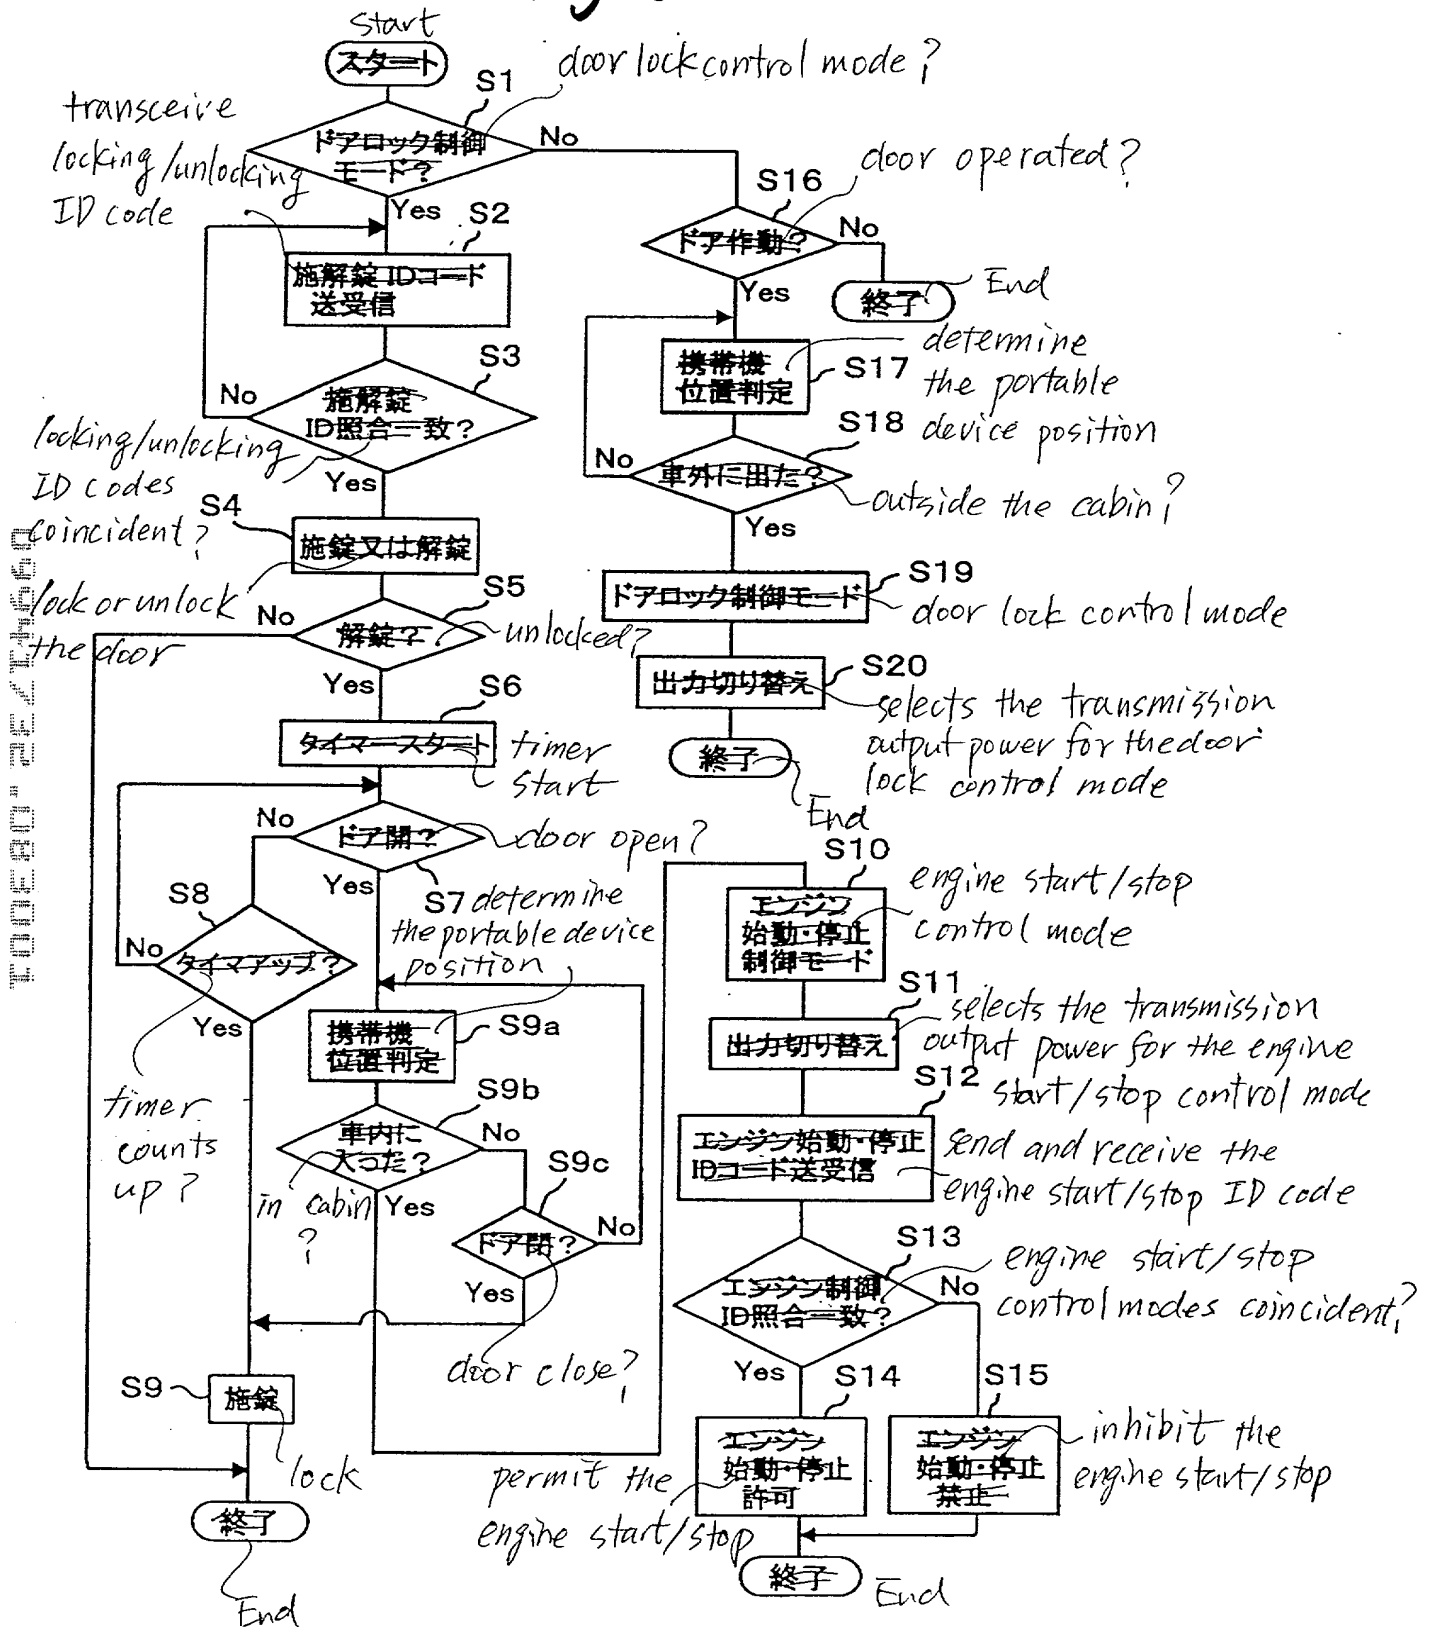 Start
スタート
S1
door lock control mode?
ドアロック制御
モード?
transceive
locking/unlocking
ID code
No
Yes
S2
施解錠IDコード
送受信
S3
施解錠
ID照合一致?
No
Yes
locking/unlocking
ID codes
coincident?
S4
施錠又は解錠
lock or unlock
the door
S5
解錠?
unlocked?
No
Yes
S6
タイマースタート
timer
start
ドア開?
door open?
No
Yes
S7
S8
タイマアップ?
No
Yes
timer
counts
up?
determine
the portable device
position
携帯機
位置判定
S9a
S9b
車内に
入った?
in cabin
?
No
Yes
S9c
ドア閉?
No
Yes
door close?
S9
施錠
lock
終了
End
S16
door operated?
ドア作動?
No
Yes
終了
End
携帯機
位置判定
S17
determine
the portable
device position
S18
車外に出た?
No
Yes
outside the cabin?
S19
ドアロック制御モード
door lock control mode
S20
出力切り替え
selects the transmission
output power for the door
lock control mode
終了
End
S10
エンジン
始動・停止
制御モード
engine start/stop
control mode
S11
出力切り替え
selects the transmission
output power for the engine
start/stop control mode
S12
エンジン始動・停止
IDコード送受信
send and receive the
engine start/stop ID code
S13
エンジン制御
ID照合一致?
engine start/stop
control modes coincident?
No
Yes
S14
エンジン
始動・停止
許可
permit the
engine start/stop
S15
エンジン
始動・停止
禁止
inhibit the
engine start/stop
終了
End